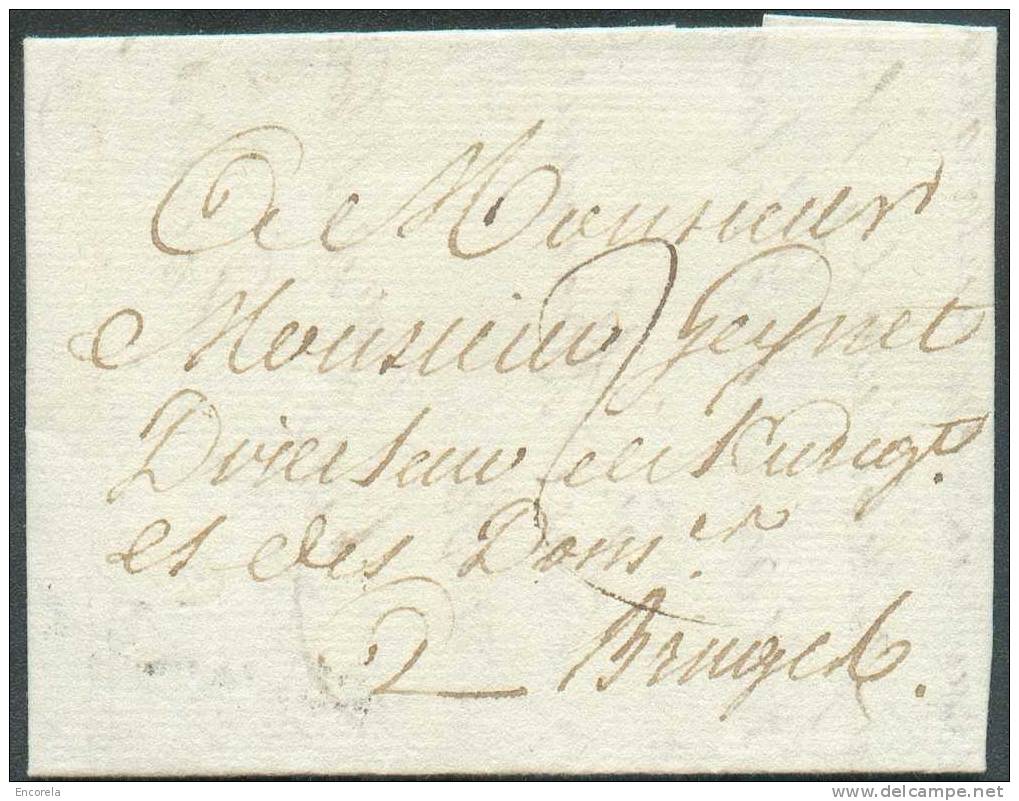 A Monsieur
Monsieur Geynet
Directeur de l'Enregt.
et des Domes.
à Bruges.
Encorela
www.delcampe.net